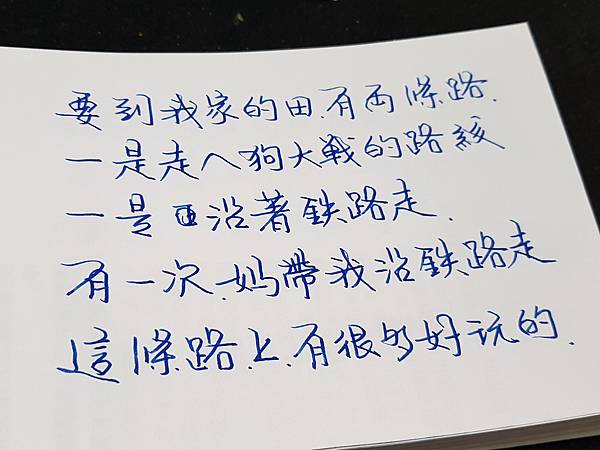 要到我家的田.有兩條路.
一是走人狗大戰的路線
一是 沿著鉄路走.
有一次.媽帶我沿鉄路走
這條路上.有很多好玩的.